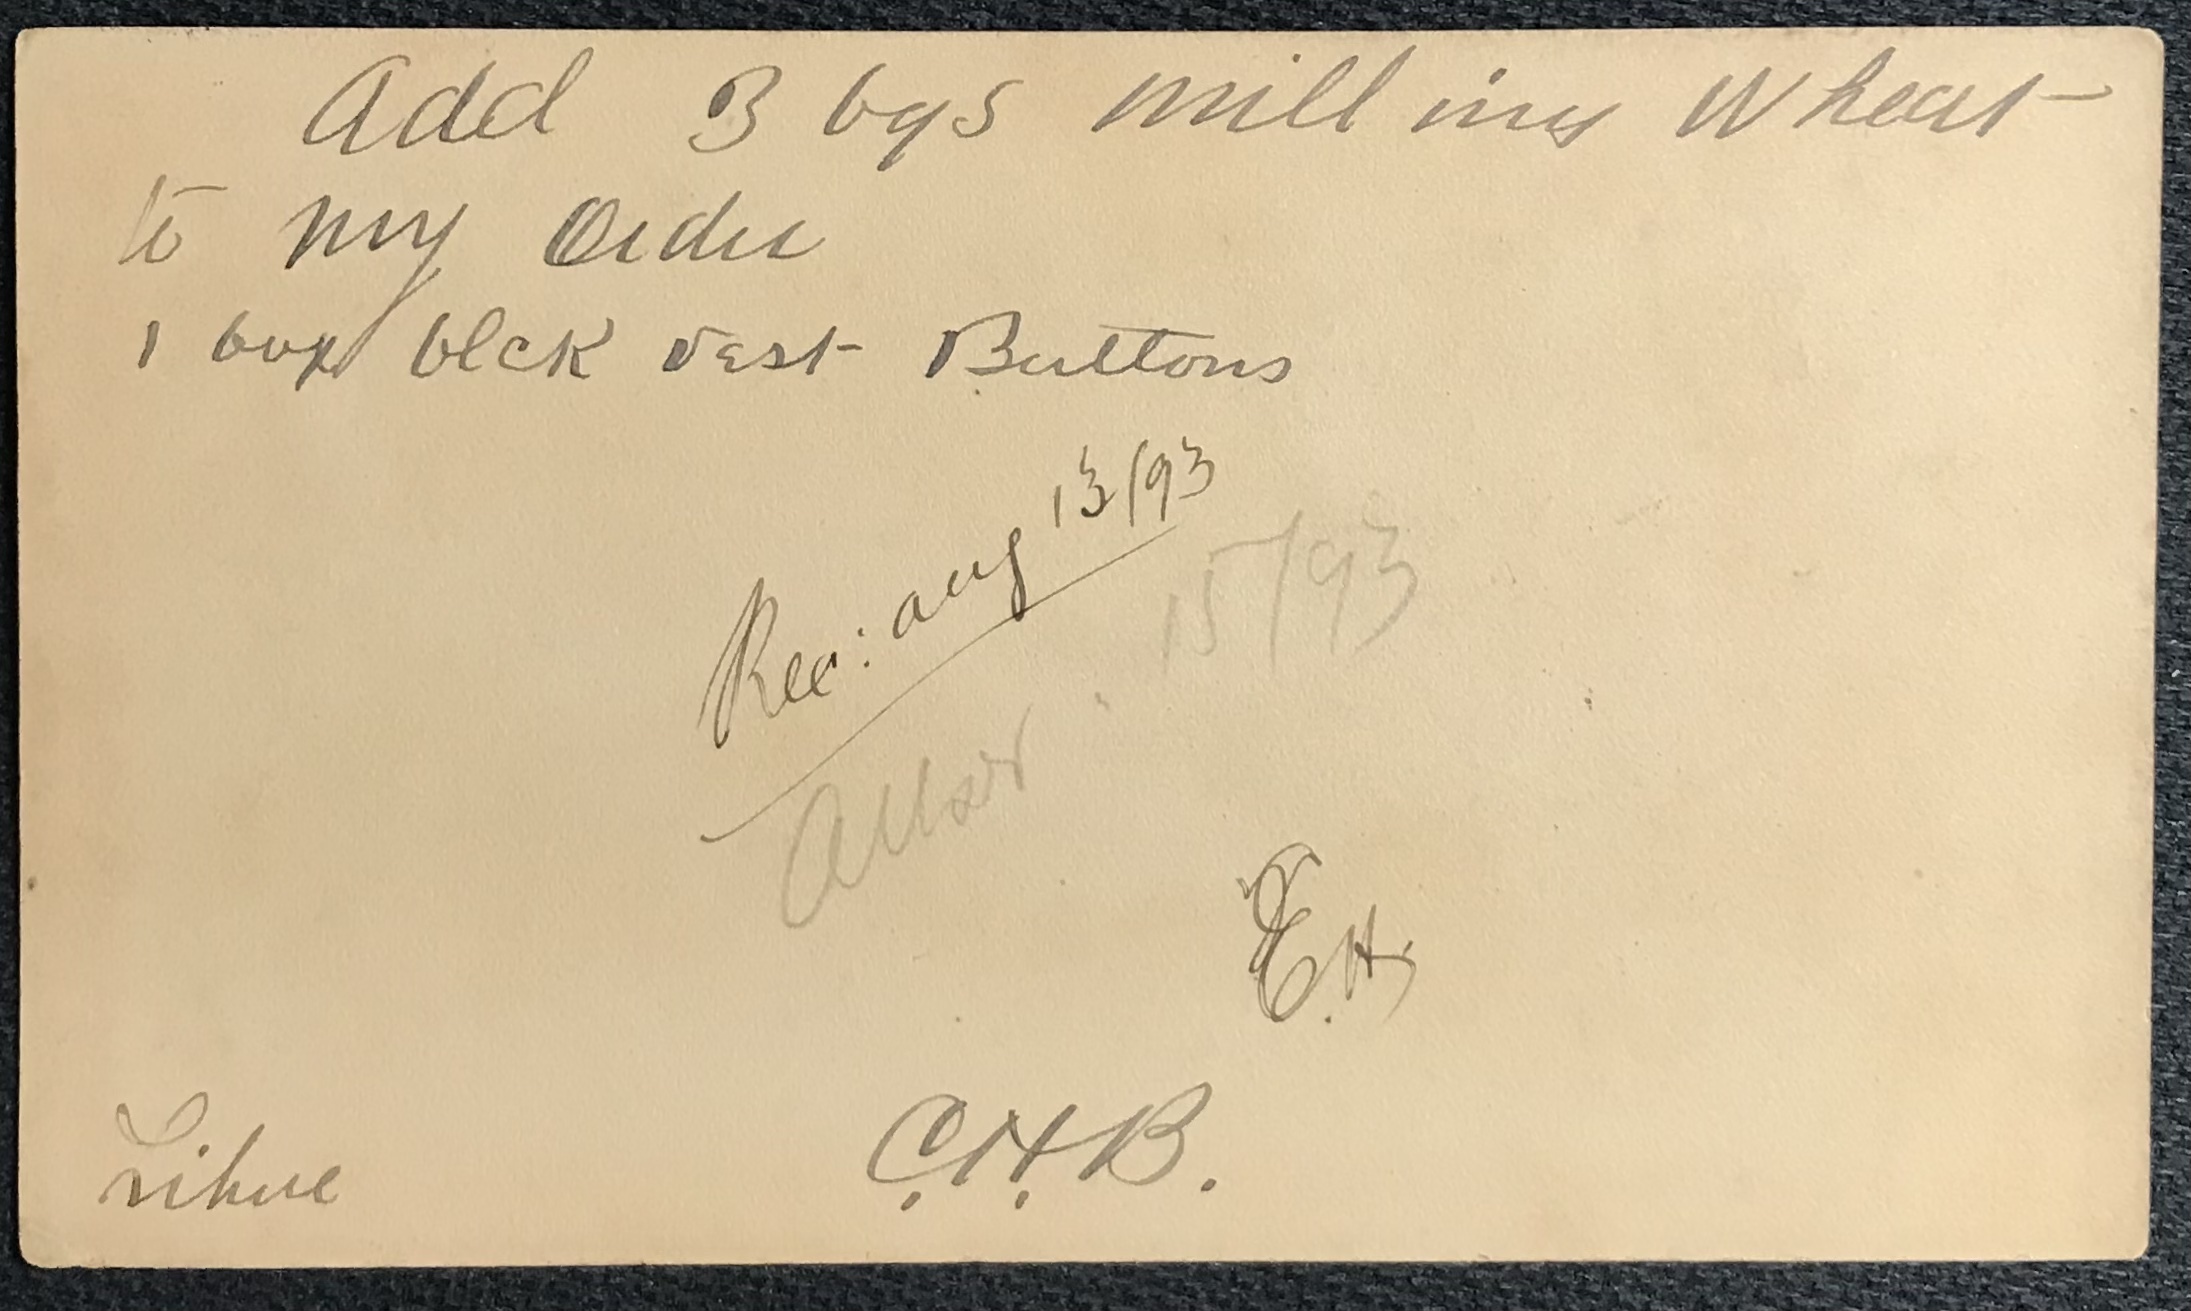 Add 3 bgs milling Wheat
to my Order
1 box blck vest Buttons
Rec: Aug 13/93
15/93
E.H.
C.H.B.
Lihue